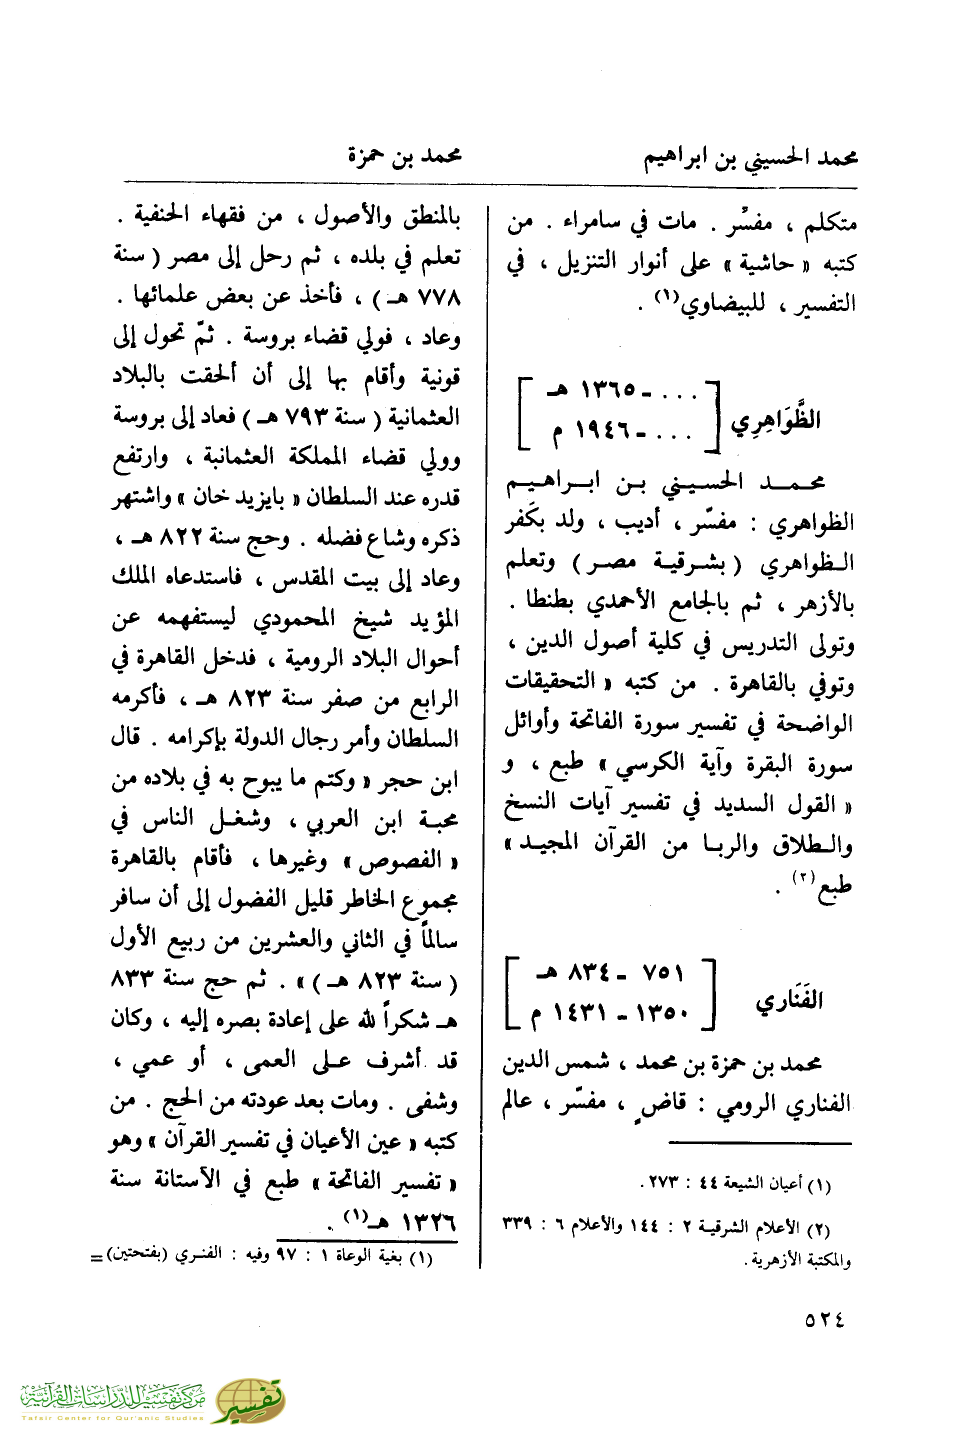 محمد الحسيني بن ابراهيم
محمد بن حمزة
متكلم ، مفسِّر . مات في سامراء . من
كتبه « حاشية » على أنوار التنزيل ، في
التفسير ، للبيضاوي(١) .
الظَّوَاهِرِي
[ . . . ـ ١٣٦٥ هـ
. . . ـ ١٩٤٦ م ]
محمـد الحسيـني بـن ابـراهـيم
الظواهري : مفسّر ، أديب ، ولد بكَفر
الـظواهري ( بشـرقيـة مصـر ) وتعلم
بالأزهر ، ثم بالجامع الأحمدي بطنطا .
وتولى التدريس في كلية أصول الدين ،
وتوفي بالقاهرة . من كتبه « التحقيقات
الواضحة في تفسير سورة الفاتحة وأوائل
سورة البقرة وآية الكرسي » طبع ، و
« القول السديد في تفسير آيات النسخ
والـطلاق والربـا من القرآن المجيـد »
طبع(٢) .
الفَنَاري
[ ٧٥١ ـ ٨٣٤ هـ
١٣٥٠ ـ ١٤٣١ م ]
محمد بن حمزة بن محمد ، شمس الدين
الفناري الرومي : قاضٍ ، مفسّر ، عالم
(١) أعيان الشيعة ٤٤ : ٢٧٣ .
(٢) الأعلام الشرقيـة ٢ : ١٤٤ والأعلام ٦ : ٣٣٩
والمكتبة الأزهرية .
بالمنطق والأصول ، من فقهاء الحنفية .
تعلم في بلده ، ثم رحل إلى مصر ( سنة
٧٧٨ هـ ) ، فأخذ عن بعض علمائها .
وعاد ، فولي قضاء بروسة . ثمّ تحول إلى
قونية وأقام بها إلى أن ألحقت بالبلاد
العثمانية ( سنة ٧٩٣ هـ ) فعاد إلى بروسة
وولي قضاء المملكة العثمانية ، وارتفع
قدره عند السلطان « بايزيد خان » واشتهر
ذكره وشاع فضله . وحج سنة ٨٢٢ هـ ،
وعاد إلى بيت المقدس ، فاستدعاه الملك
المؤيد شيخ المحمودي ليستفهمه عن
أحوال البلاد الرومية ، فدخل القاهرة في
الرابع من صفر سنة ٨٢٣ هـ ، فأكرمه
السلطان وأمر رجال الدولة بإكرامه . قال
ابن حجر « وكتم ما يبوح به في بلاده من
محبـة ابن العربي ، وشغـل الناس في
« الفصوص » وغيرها ، فأقام بالقاهرة
مجموع الخاطر قليل الفضول إلى أن سافر
سالماً في الثاني والعشرين من ربيع الأول
( سنة ٨٢٣ هـ ) » . ثم حج سنة ٨٣٣
هـ شكراً لله على إعادة بصره إليه ، وكان
قد أشرف عـلى العمى ، أو عمي ،
وشفى . ومات بعد عودته من الحج . من
كتبه « عين الأعيان في تفسير القرآن » وهو
« تفسير الفاتحة » طبع في الآستانة سنة
١٣٢٦ هـ(١) .
(١) بغية الوعاة ١ : ٩٧ وفيه : الفنـري (بفتحتين) =
٥٢٤
مركز تفسير للدراسات القرآنية
Tafsir Center for Qur'anic Studies
تفسير